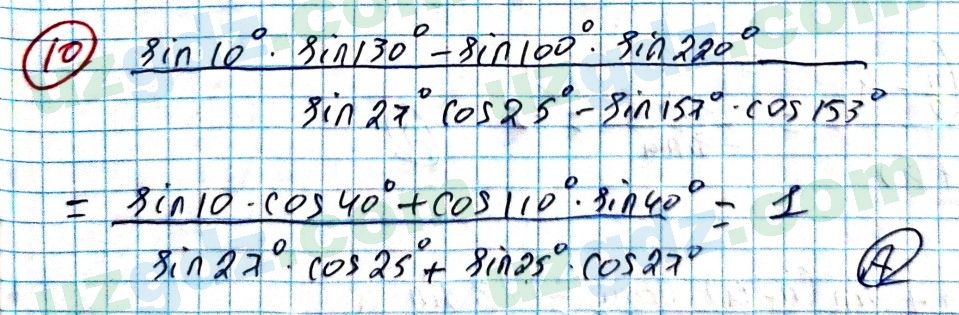 10 sin10°·sin130°-sin100°·sin220°
sin27°cos25°-sin157°·cos153°
= sin10·cos40°+cos110°·sin40° = 1
sin27°·cos25°+sin25°·cos27° A
uzgdz.com